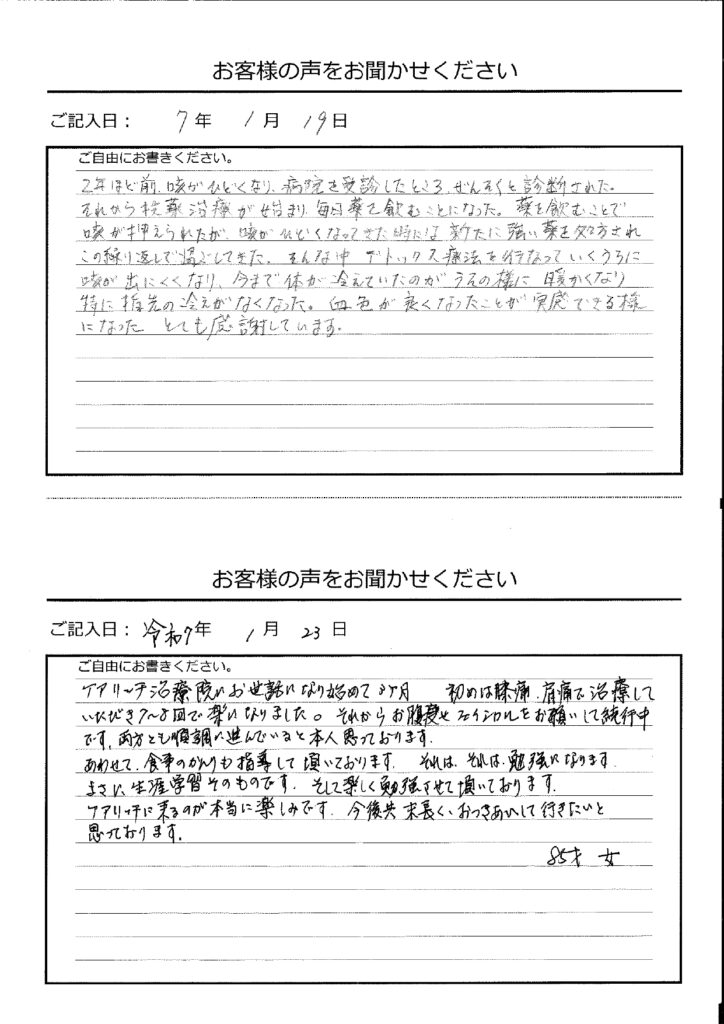 お客様の声をお聞かせください
ご記入日： 7年 1月 19日
ご自由にお書きください。
2年ほど前、咳がひどくなり、病院を受診したところ、ぜんそくと診断された。
それから投薬治療が始まり、毎日薬を飲むことになった。薬を飲むことで
咳が抑えられたが、咳がひどくなってきた時には新たに強い薬を処方され
この繰り返しで過ごしてきた。そんな中デトックス療法を行なっていくうちに
咳が出にくくなり、今まで体が冷えていたのがうその様に暖かくなり
特に指先の冷えがなくなった。血色が良くなったことが実感できる様
になった とても感謝しています。
お客様の声をお聞かせください
ご記入日： 令和7年 1月 23日
ご自由にお書きください。
ケアリッチ治療院にお世話になり始めて3ケ月 初めは膝痛、肩痛で治療して
いただき7〜8回で楽になりました。それからお腹痩せフェイシャルをお願いして続行中
です、両方とも順調に進んでいると本人思っております。
あわせて、食事のかんりも指導して頂いております。それは、それは、勉強になります
まさに生涯学習そのものです。そして楽しく勉強させて頂いております。
ケアリッチに来るのが本当に楽しみです。今後共末長く、おつきあいして行きたいと
思っております。
85才 女